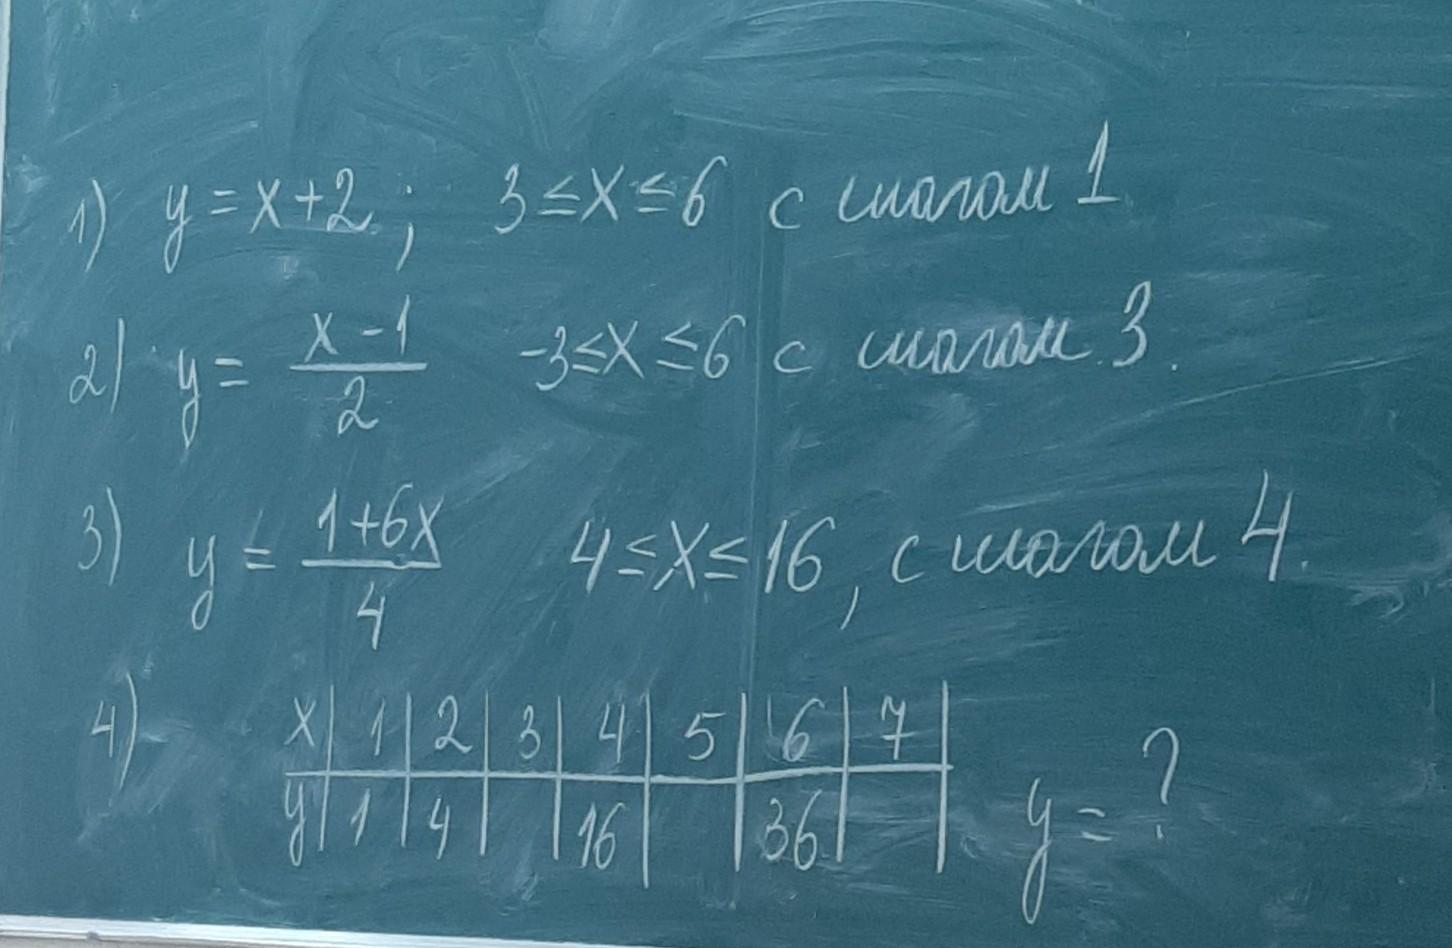 1) y = x+2; 3≤x≤6 с шагом 1
2) y = (x-1)/2 -3≤x≤6 с шагом 3.
3) y = (1+6x)/4 4≤x≤16, с шагом 4.
4) x | 1 | 2 | 3 | 4 | 5 | 6 | 7 |
y | 1 | 4 | | 16 | | 36 | | y = ?